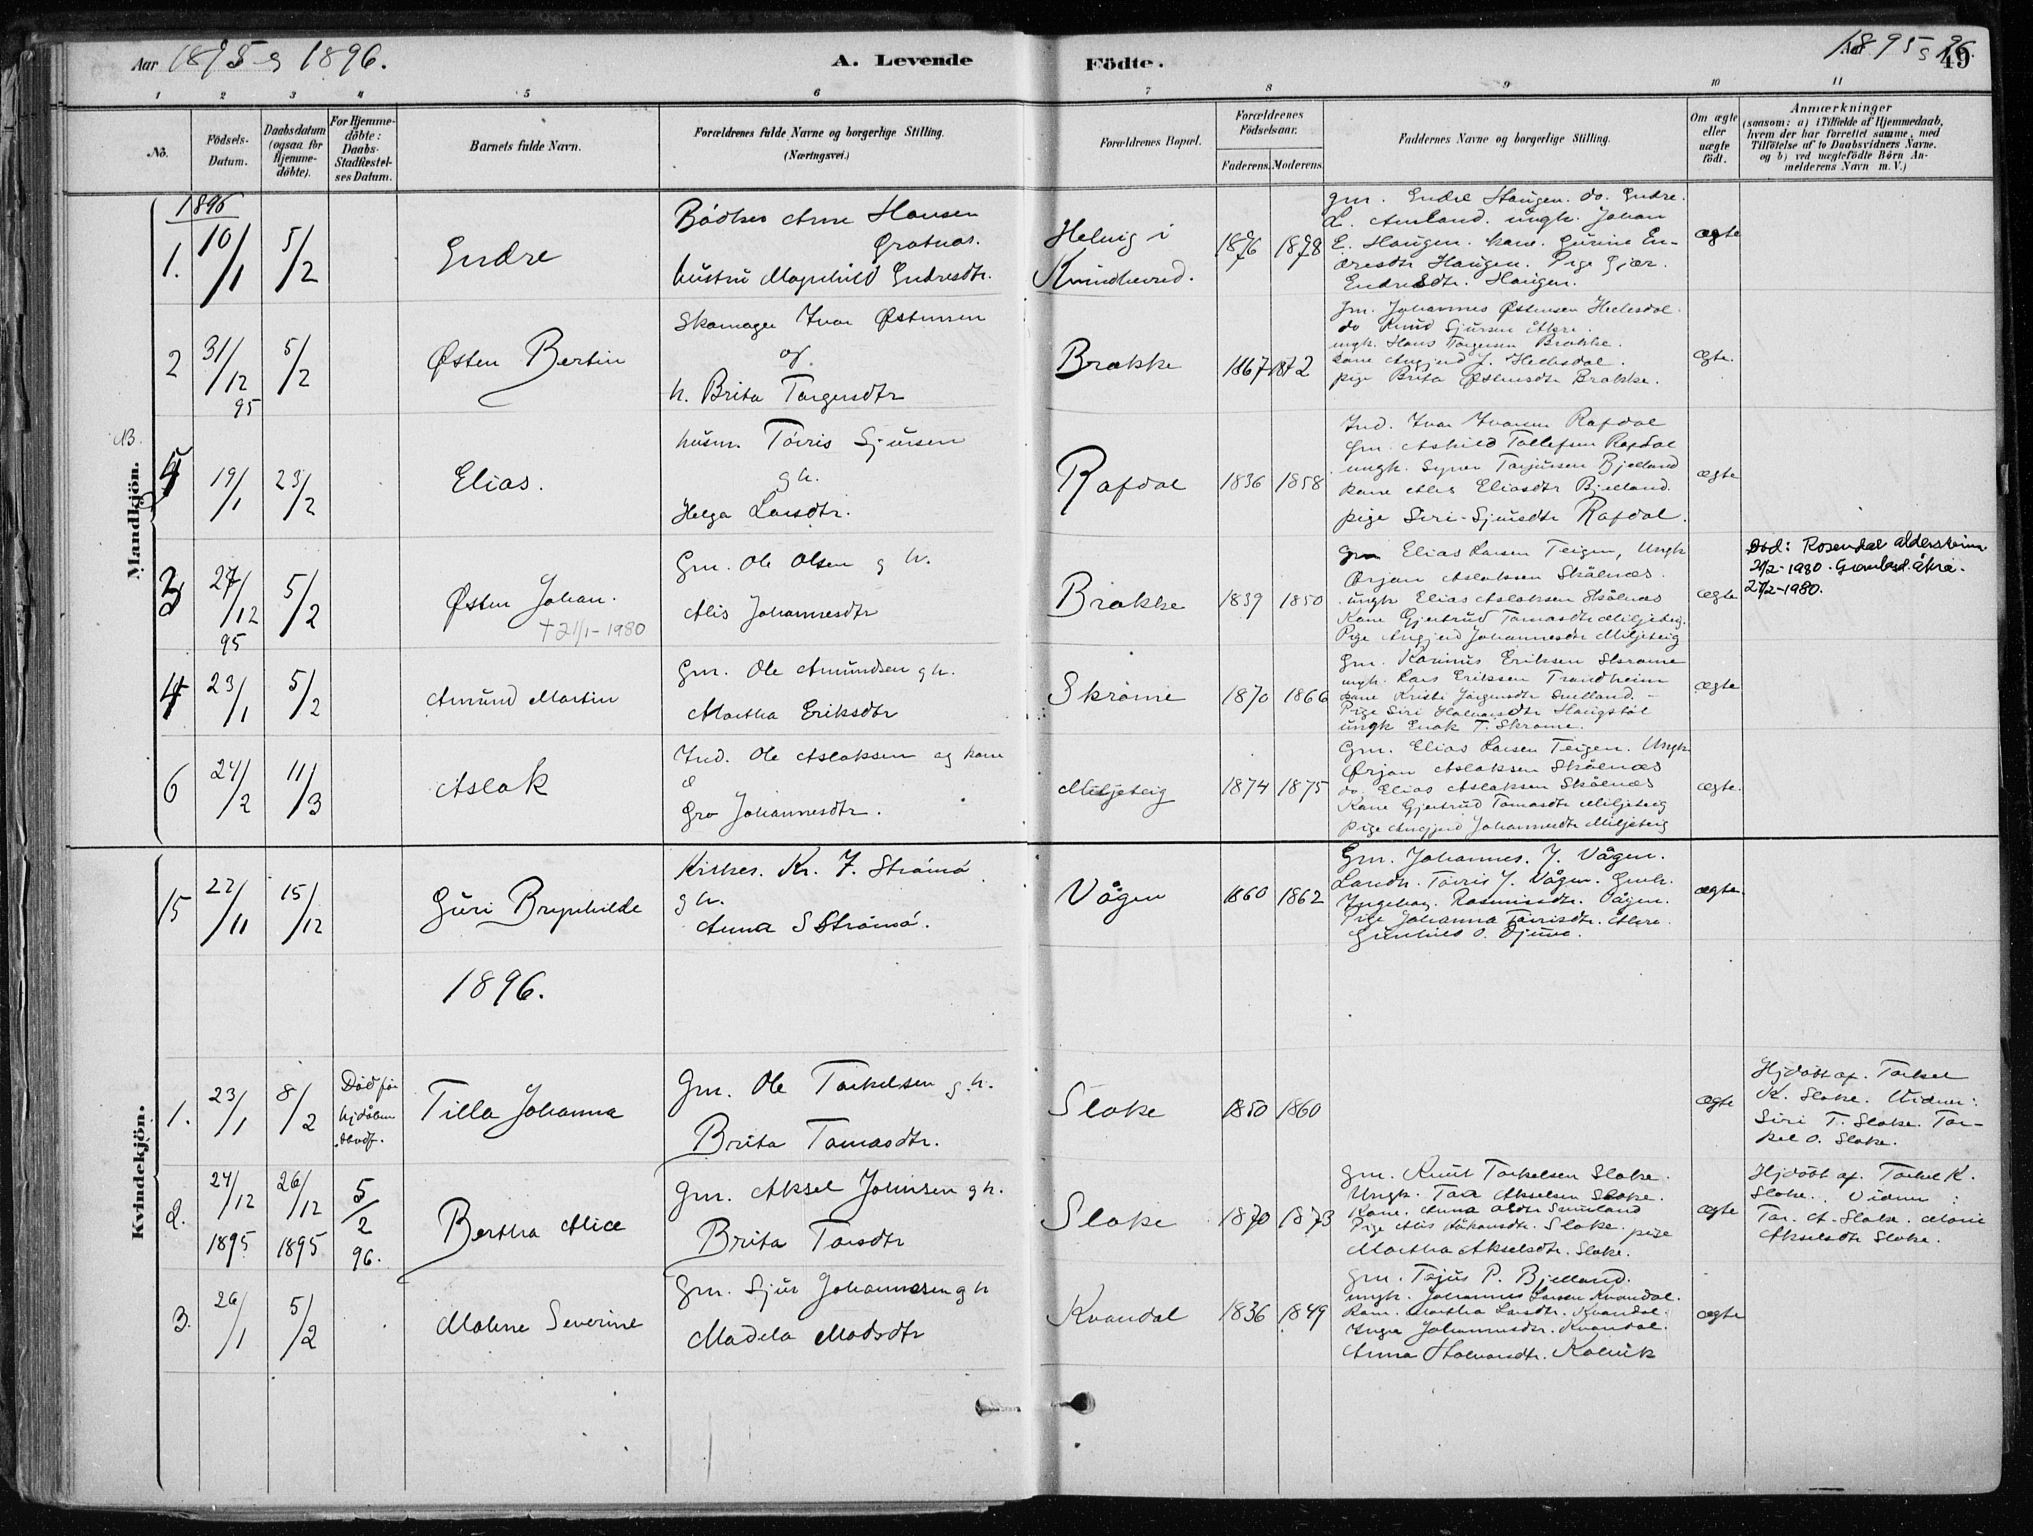 Aar 1895 og 1896.
A. Levende
Födte.
Aar 1895 og 96.
49
1 2 3 4 5 6 7 8 9 10 11
No.
Födsels-
Datum.
Daabsdatum
(ogsaa for
Hjemme-
döbte).
For Hjemme-
döbte:
Daabs-
Stadfæstel-
ses Datum.
Barnets fulde Navn.
Forældrenes fulde Navne og borgerlige Stilling.
(Næringsvei.)
Forældrenes Bopæl.
Forældrenes
Födselsaar.
Faderens. Moderens.
Faddernes Navne og borgerlige Stilling.
Om ægte
eller
uægte
født.
Anmærkninger
(saasom: a) i Tilfælde af Hjemmedaab,
hvem der har forrettet samme, med
Tilföielse af to Daabsvidners Navne.
og b) ved uægtefödte Börn An-
melderens Navn m. V.)
Mandkjön.
1896
1. 10/1 5/2
Endre
Bødker Arne Hansen
hustru Magnhild Endresdtr.
Helvig i
Kvindherred.
1876 1878
gm. Endre Haugen. do. Endre
L. Amland. ungk. Johan
E. Haugen. kone. Gurine En-
dresdtr Haugen. Pige Gjær.
Endresdtr. Haugen.
ægte
2 31/12 95 5/2
Østen Bertin
Skomager Ivar Østensen
og
h. Brita Torgersdtr
Brakke
1867 1872
Gm. Johannes Østensen
do Knud Sjursen Åkre.
ungk. Hans Torgersen Brakke.
pige Brita Østensdtr Brakke.
ægte.
NB.
5 19/1 23/2
Elias.
husm. Tørris Sjursen
g h.
Helga Larsdtr.
Rafdal
1836 1858
Ind. Ivar Ivarsen Rafdal
Gm. Askild Tollefsen Rafdal
ungk. Syver Torjussen Bjelland
kone Alis Eliasdtr Bjelland.
pige Siri Sjursdtr Rafdal.
ægte
3 27/12 95 5/2
Østen Johan.
† 21/1-1980
Gm. Ole Olsen g h.
Alis Johannesdtr
Brakke
1839 1850
gm Elias Larsen Teigen, Ungk
Ørjan Aslaksen Skålnæs.
ungk Elias Aslaksen Skålnæs
Kone Gjertrud Tomasdtr Miljeteig.
Pige Angjerd Johannesdtr Miljeteig
ægte
Død: Rosendal aldersheim
21/2-1980. Gravlagd Åkra.
27/2-1980.
4 23/1 5/2
Amund Martin
Gm. Ole Amundsen g h.
Martha Eriksdtr
Skrome
1870 1866
Gm. Rasmus Eriksen Skrome
ungk. Lars Eriksen Trondheim
ungk Enok T. Skrome.
ægte
6 24/2 11/3
Aslak
Ind. Ole Aslaksen og kone
Gro Johannesdtr.
Miljeteig
1874 1875
Gm. Elias Larsen Teigen. Ungk
Ørjan Aslaksen Skålnæs
do. Elias Aslaksen Skålnæs
Kone Gjertrud Tomasdtr Miljeteig
pige Angjerd Johannesdtr Miljeteig
ægte.
Kvindekjön.
15 22/11 15/12
Guri Brynhilde
Kirkes. Kr. J. Strømø
g h.
Anna S Strømø.
Vågen
1860 1862
Gm. Johannes. J. Vågen.
Landh. Tørris J. Vågen. Gmk.
Ingeborg. Rasmusdtr. Vågen.
Pige Johanna Tørrisdtr. Åkre.
Gunhild O. Djuve.
ægte.
1896.
1. 23/1 8/2
Død før
hjdåben
Tilla Johanna
Gm. Ole Torkelsen g h.
Brita Tomasdtr.
Sloke
1850 1860
ægte
Hjdøbt af. Torkel
K. Sloke. Vidner:
Siri T. Sloke. Tor-
kel O. Sloke.
2. 24/12 1895 26/12 1895 5/2 96.
Bertha Alice
Gm. Aksel Johnsen g h.
Brita Torsdtr
Sloke
1870 1873
Gm. Knut Torkelsen Sloke.
Ungk. Tor Akselsen Sloke.
Pige Alis Håkonsdtr. Sloke. pige
Martha Akselsdtr. Sloke.
ægte
Hjdøbt af Torkel K.
Sloke. Vidner:
Tor. A. Sloke. Marie
Akselsdtr Sloke.
3. 26/1 5/2
Malene Severine
Gm. Sjur Johannesen g h
Madela Madsdtr
Kvandal
1836 1849
Gm. Tøjus P. Bjelland.
ungk. Johannes Larsen Kvandal.
Kone. Martha Larsdtr. Kvandal.
Inga Johannesdtr. Kvandal.
Anna Halvorsdtr. Kalvik
ægte